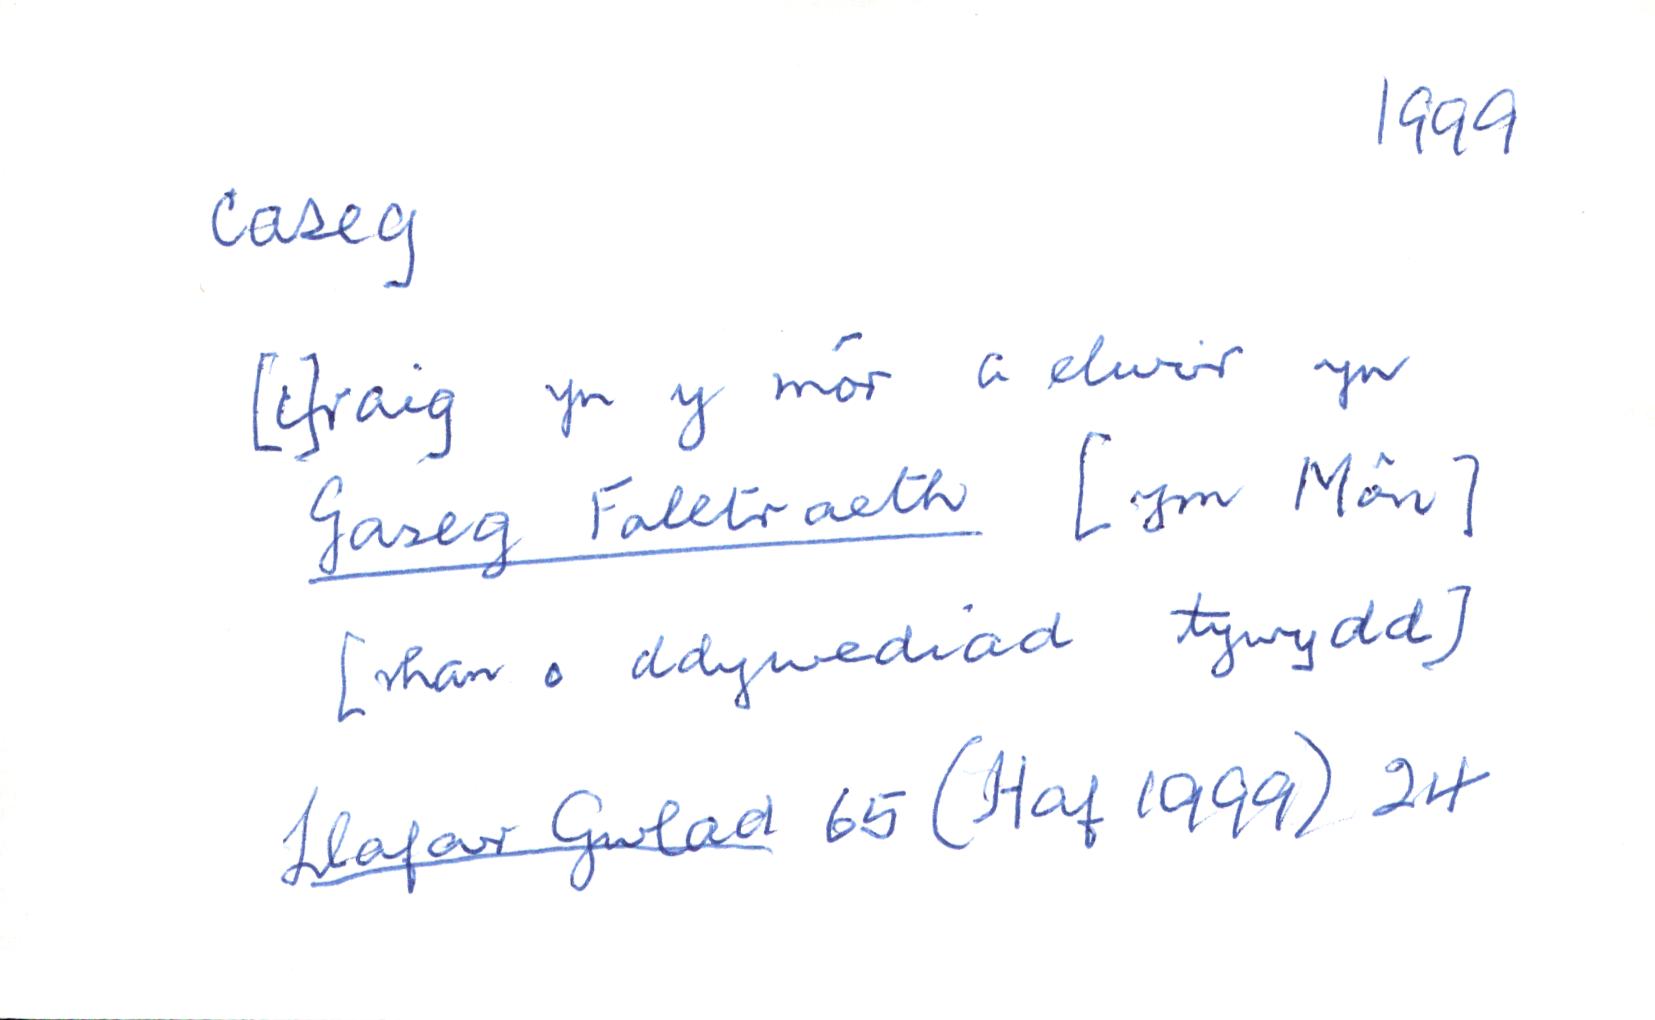 1999
caseg
[c]raig yn y môr a elwir yn
Gaseg Falltraeth [ym Môn]
[rhan o ddywediad tywydd]
Llafar Gwlad 65 (Haf 1999) 24